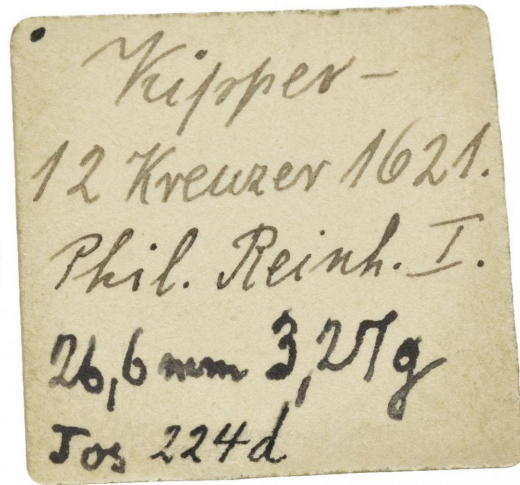 Kipper-
12 Kreuzer 1621.
Phil. Reinh. I.
26,6 mm 3,27g
Jos 224d